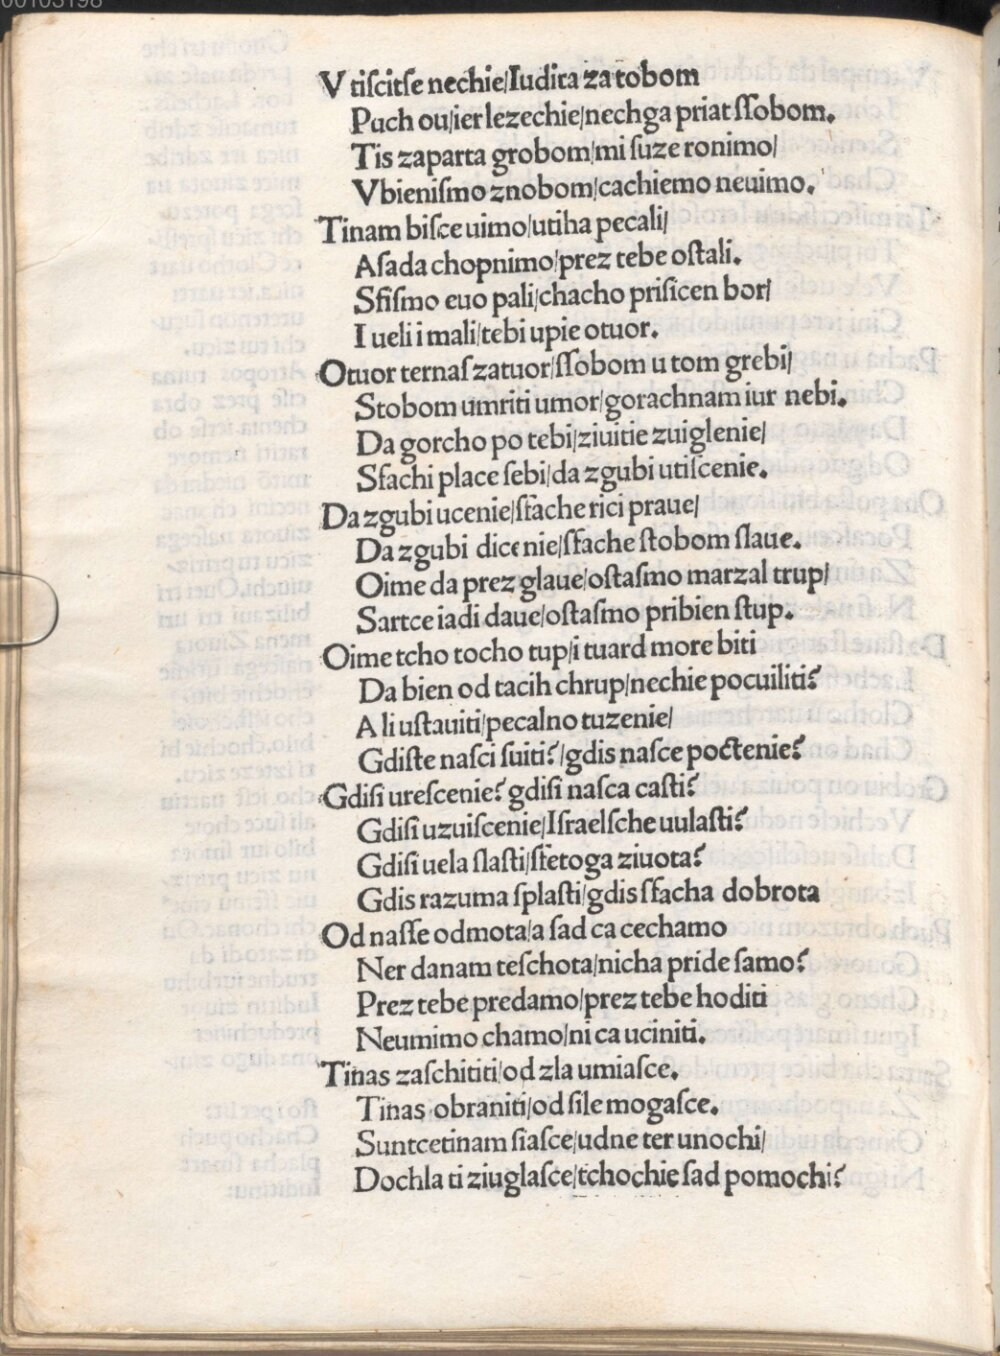 00103198
V tiſcitſe nechie/Iudita za tobom
Puch ou/ier lezechie/nechga priat ſſobom.
Tis zaparta grobom/mi ſuze ronimo/
Vbieniſmo znobom/cachiemo neuimo.
Tinam biſce uimo/utiha pecali/
Aſada chopnimo/prez tebe oſtali.
Sfiſmo euo pali/chacho priſicen bor/
I ueli i mali/tebi upie otuor.
Otuor ternaſ zatuor/ſſobom u tom grebi/
Stobom umriti umor/gorachnam iur nebi.
Da gorcho po tebi/ziuitie zuiglenie/
Sfachi place ſebi/da zgubi utiſcenie.
Da zgubi ucenie/ſfache rici praue/
Da zgubi dicenie/ſfache ſtobom ſlaue.
Oime da prez glaue/oſtaſmo marzal trup/
Sartce iadi daue/oſtaſmo pribien ſtup.
Oime tcho tocho tup/i tuard more biti
Da bien od tacih chrup/nechie pocuiliti?
A li uſtauiti/pecalno tuzenie/
Gdiſte naſci ſuiti?/gdis naſce poctenie?
Gdiſi ureſcenie? gdiſi naſca caſti?
Gdiſi uzuiſcenie/Iſraelſche uulaſti?
Gdiſi uela ſlaſti/ſfetoga ziuota?
Gdis razuma ſplaſti/gdis ſfacha dobrota
Od naſſe odmota/a ſad ca cechamo
Ner danam teſchota/nicha pride ſamo?
Prez tebe predamo/prez tebe hoditi
Neumimo chamo/ni ca uciniti.
Tinas zaſchititi/od zla umiaſce.
Tinas obraniti/od ſile mogaſce.
Suntcetinam ſiaſce/udne ter unochi/
Dochla ti ziuglaſce/tchochie ſad pomochi?